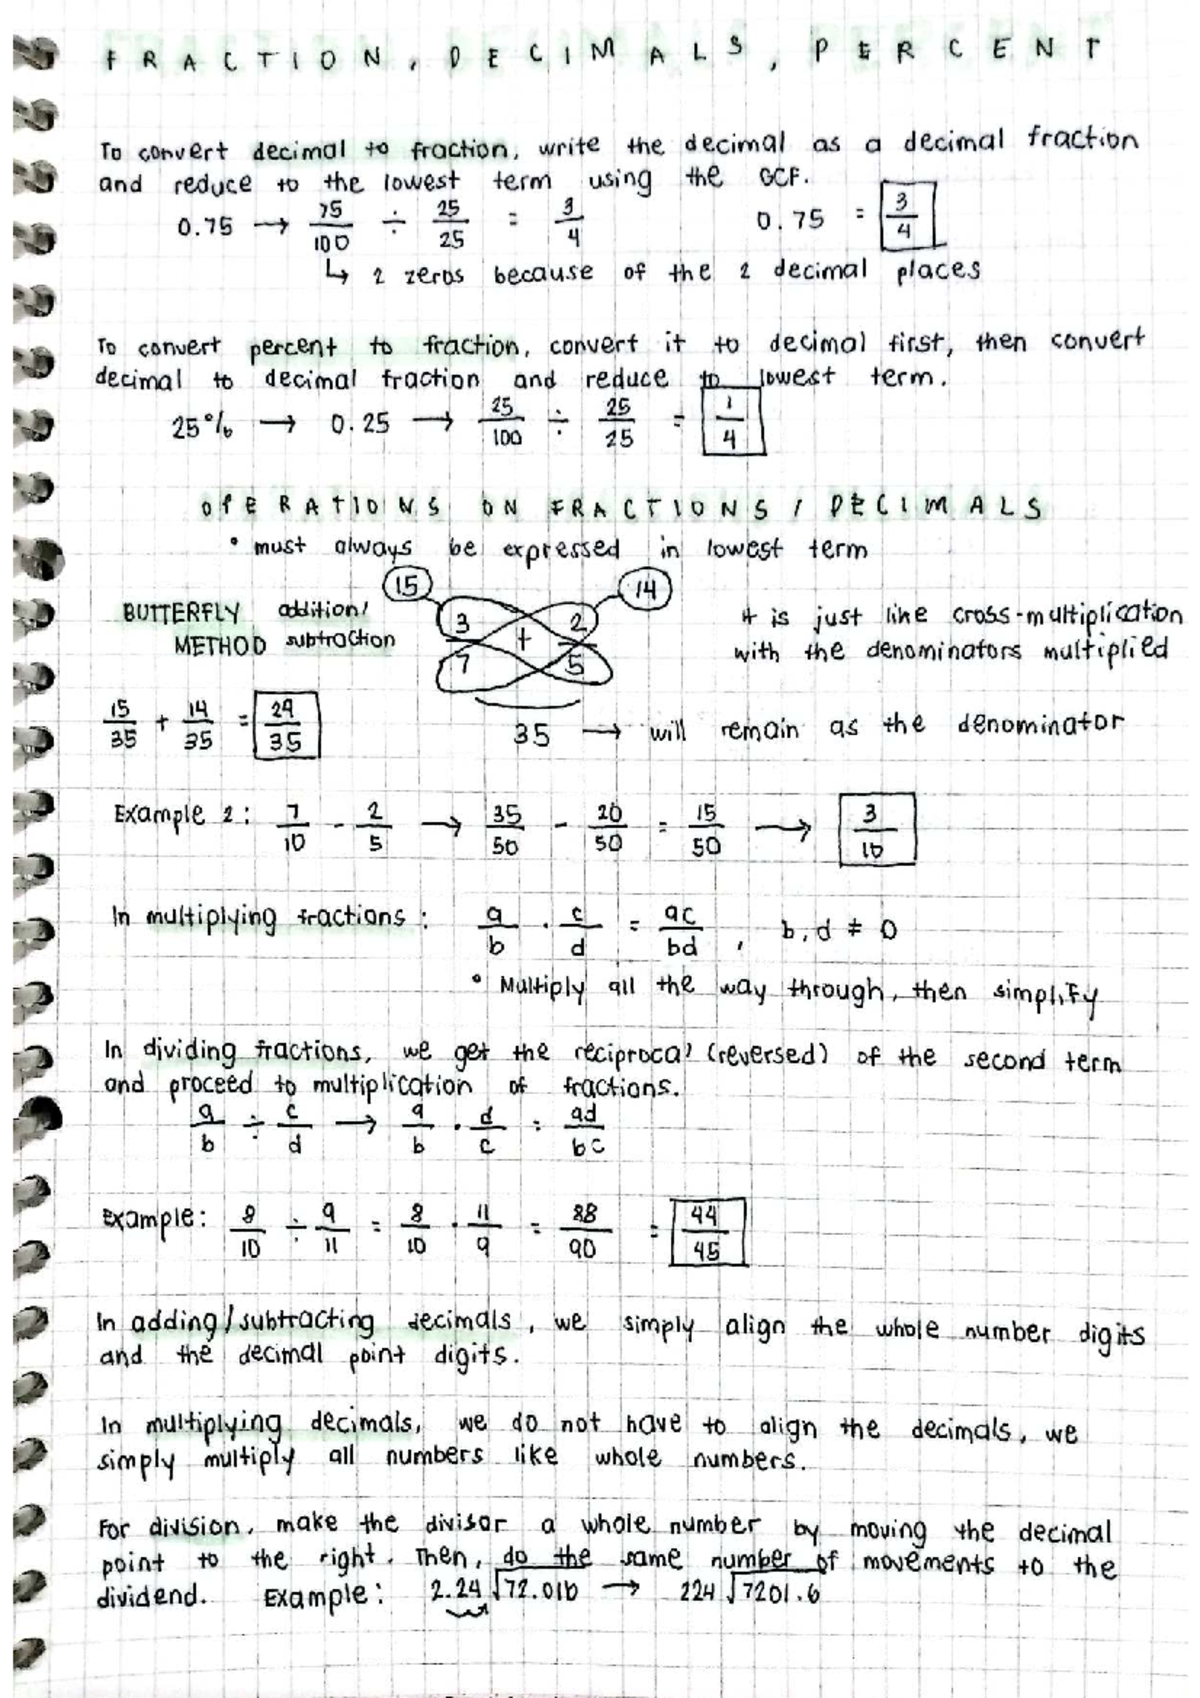 FRACTION, DECIMALS, PERCENT
To convert decimal to fraction, write the decimal as a decimal fraction
and reduce to the lowest term using the GCF.
0.75 → 75/100 ÷ 25/25 = 3/4 0.75 = 3/4
↳ 2 zeros because of the 2 decimal places
To convert percent to fraction, convert it to decimal first, then convert
decimal to decimal fraction and reduce to lowest term.
25% → 0.25 → 25/100 ÷ 25/25 = 1/4
OPERATIONS ON FRACTIONS / DECIMALS
• must always be expressed in lowest term
15 14
BUTTERFLY addition/ 3/7 + 2/5 it is just like cross-multiplication
METHOD subtraction with the denominators multiplied
15/35 + 14/35 = 29/35 35 → will remain as the denominator
Example 2: 7/10 - 2/5 → 35/50 - 20/50 = 15/50 → 3/10
In multiplying fractions: a/b · c/d = ac/bd , b, d ≠ 0
• Multiply all the way through, then simplify
In dividing fractions, we get the reciprocal (reversed) of the second term
and proceed to multiplication of fractions.
a/b ÷ c/d → a/b · d/c = ad/bc
Example: 8/10 ÷ 9/11 = 8/10 · 11/9 = 88/90 = 44/45
In adding/subtracting decimals, we simply align the whole number digits
and the decimal point digits.
In multiplying decimals, we do not have to align the decimals, we
simply multiply all numbers like whole numbers.
For division, make the divisor a whole number by moving the decimal
point to the right. Then, do the same number of movements to the
dividend. Example: 2.24 √72.016 → 224 √7201.6